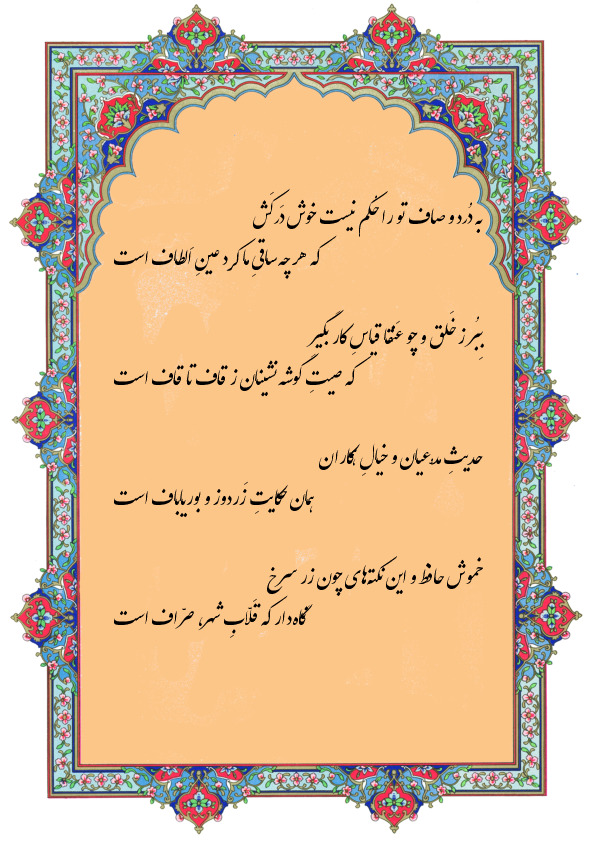 به دُرد و صاف تو را حکم نیست خوش دَرکَش
که هر چه ساقیِ ما کرد عینِ اَلطاف است
بِبُر ز خَلق و چو عَنقا قیاسِ کار بگیر
که صیتِ گوشه نشینان ز قاف تا قاف است
حدیثِ مدعیان و خیالِ همکاران
همان حکایتِ زَردوز و بوریاباف است
خموش حافظ و این نکته‌های چون زر سرخ
نگاه‌دار که قَلّابِ شهر، صرّاف است